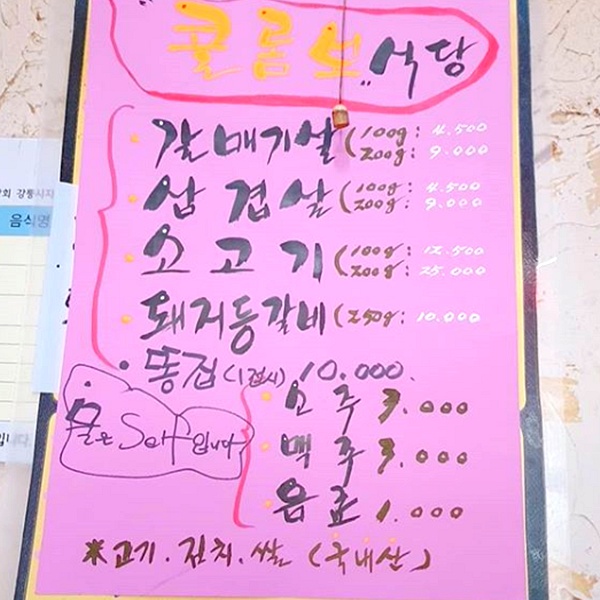 "콜롬보" 식당
갈매기살 (100g : 4.500
200g : 9.000
삼겹살 (100g : 4.500
200g : 9.000
소고기 (100g : 12.500
200g : 25.000
돼지등갈비 (250g : 10.000
똥집 (1접시) 10.000.
소주 3.000
물은 Self입니다
맥주 3.000
음료 1.000
※ 고기. 김치. 쌀 (국내산)
회 강릉시지
음식명
입니다.